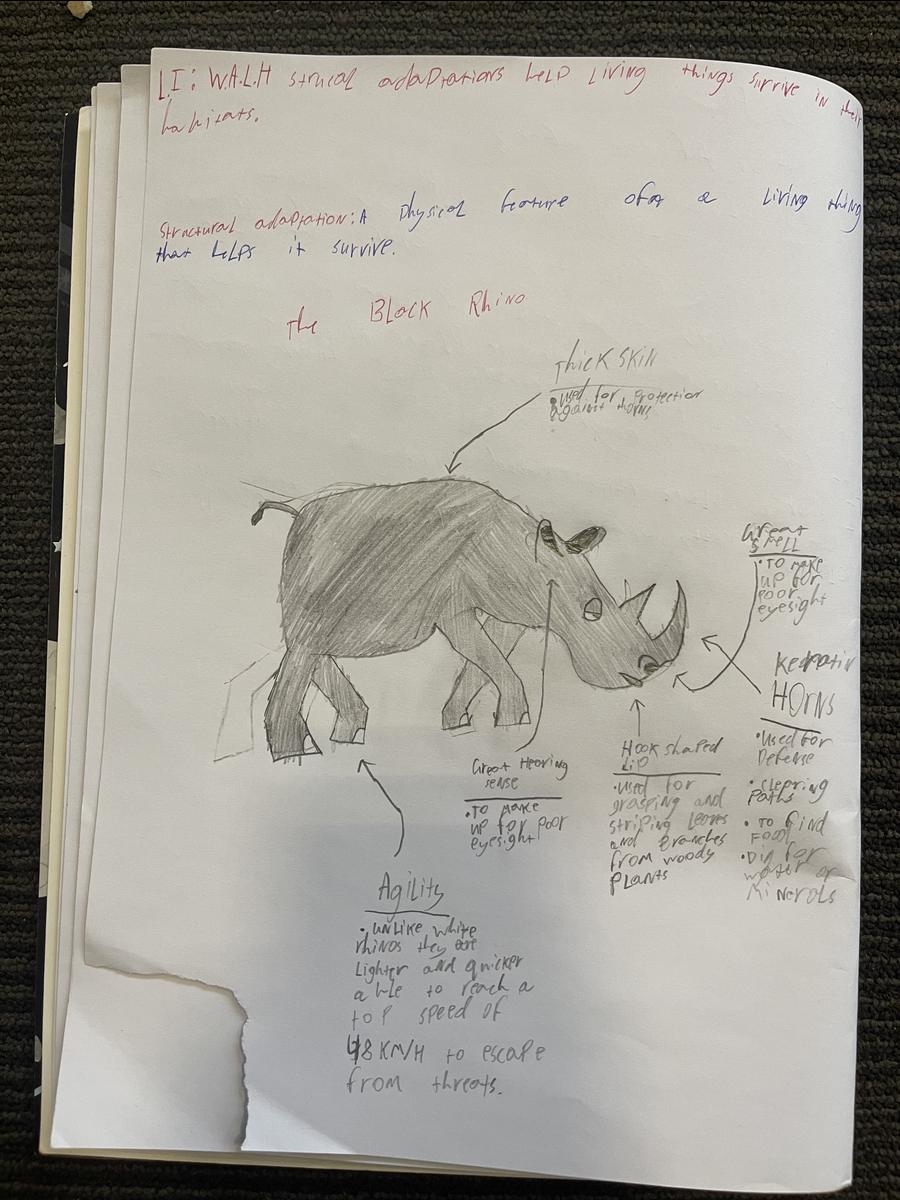 LI: W.A.L.H strucal adaptations help living things surrive in their
habitats.
Structural adaption: A physical feature of a living thing
that helps it survive.
The Black Rhino
Thick SKIN
• used for protection
against thorns
Great
smell
• To make
up for
poor
eyesight
Keratin
HOrns
• Used for
Defense
• clearing
Paths
• To find
Food
• Dig for
water or
Minerals
Hook shaped
Lip
• used for
grasping and
striping leaves
and branches
from woody
Plants
Great Hearing
sense
• To make
up for poor
eyesight
Agility
• unlike white
rhinos they are
Lighter and quicker
able to reach a
top speed of
48 KM/H to escape
from threats.